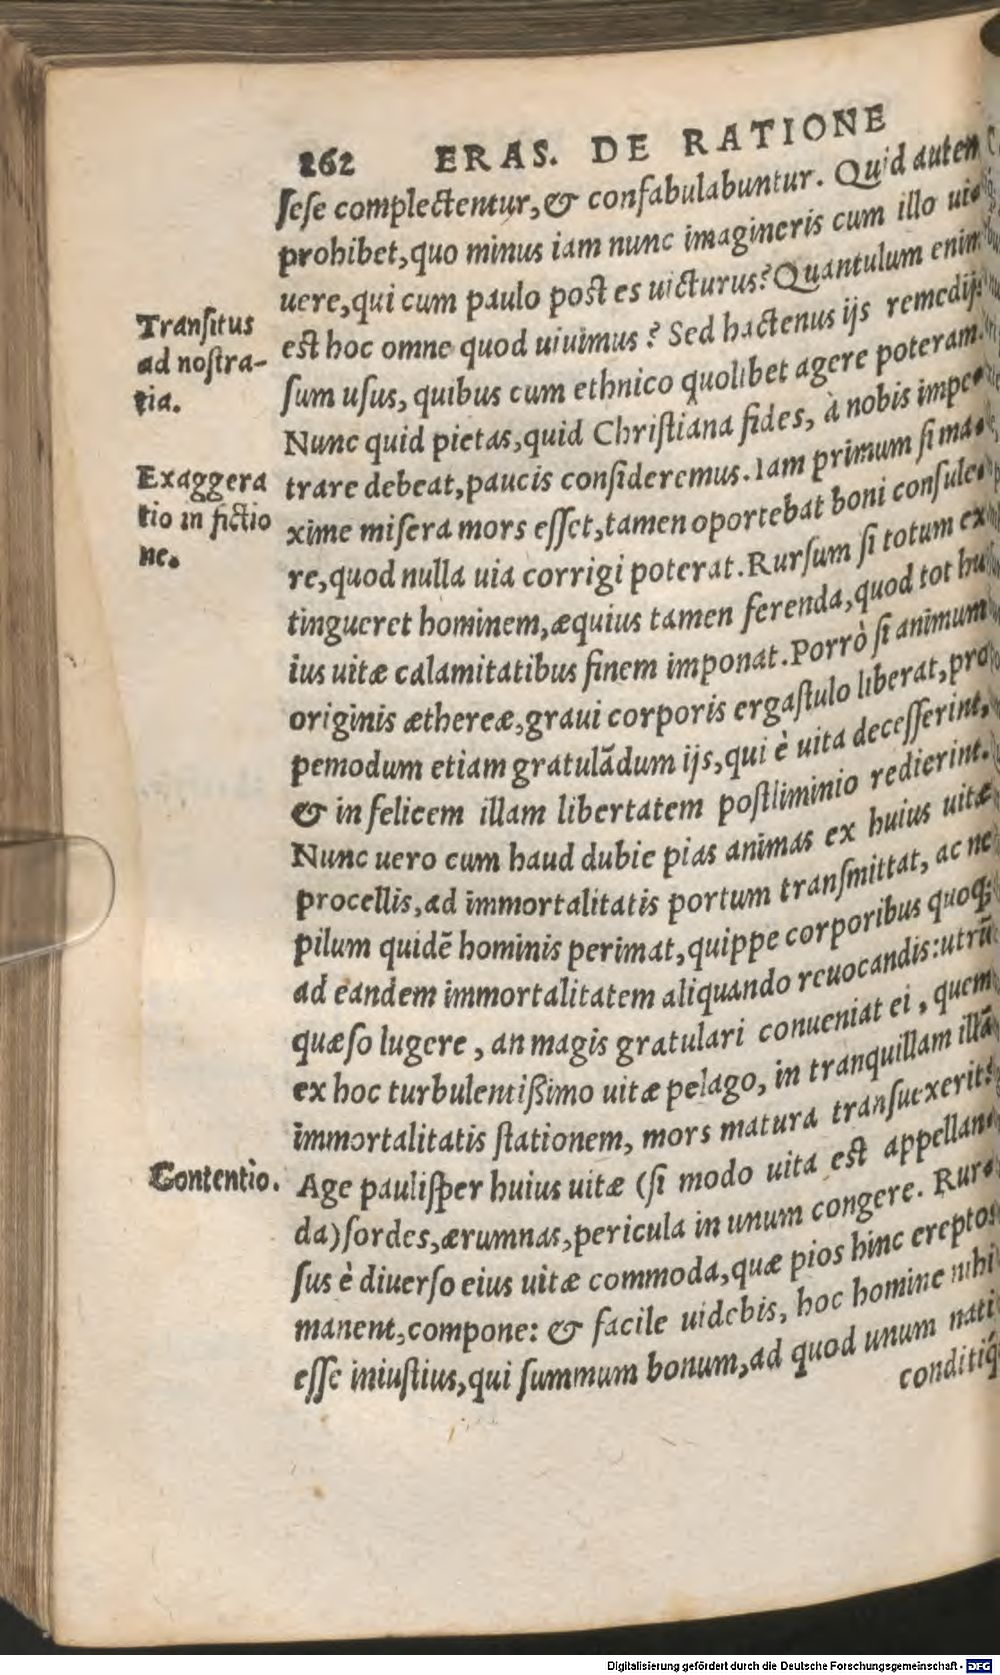 262 ERAS. DE RATIONE
ſeſe complectentur, & confabulabuntur. Quid autem
prohibet, quo minus iam nunc imagineris cum illo ui-
uere, qui cum paulo post es uicturus? Quantulum enim
Tranſitus
ad noſtra-
tia.
est hoc omne quod uiuimus? Sed hactenus ijs remedijs
ſum uſus, quibus cum ethnico quolibet agere poteram.
Nunc quid pietas, quid Chriſtiana fides, à nobis impe-
Exaggera
tio in fictio
ne.
trare debeat, paucis conſideremus. Iam primum ſi ma-
xime miſera mors eſſet, tamen oportebat boni conſule-
re, quod nulla uia corrigi poterat. Rurſum ſi totum ex
tingueret hominem, æquius tamen ferenda, quod tot hu
ius uitæ calamitatibus finem imponat. Porrò ſi animum
originis æthereæ, graui corporis ergaſtulo liberat, pro
pemodum etiam gratulādum ijs, qui è uita deceſſerint,
& in felicem illam libertatem poſtliminio redierint.
Nunc uero cum haud dubie pias animas ex huius uitæ
procellis, ad immortalitatis portum tranſmittat, ac ne
pilum quidē hominis perimat, quippe corporibus quoq;
ad eandem immortalitatem aliquando reuocandis: utrū
quæſo lugere, an magis gratulari conueniat ei, quem
ex hoc turbulentißimo uitæ pelago, in tranquillam illā
immortalitatis ſtationem, mors matura tranſuexerit?
Contentio.
Age pauliſper huius uitæ (ſi modo uita est appellan-
da) ſordes, ærumnas, pericula in unum congere. Rur-
ſus è diuerſo eius uitæ commoda, quæ pios hinc ereptos
manent, compone: & facile uidebis, hoc homine nihil
eſſe iniuſtius, qui ſummum bonum, ad quod unum nati
conditiq́